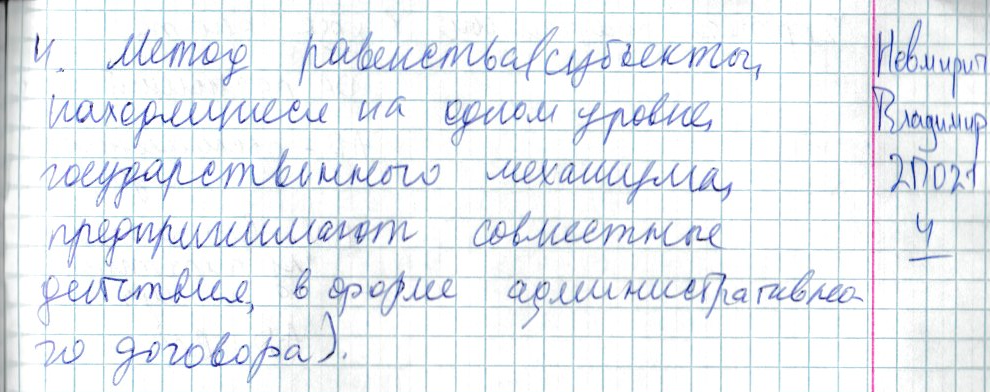 4. Метод равенства(субъекты,
находящиеся на одном уровне
государственного механизма,
предпринимают совместные
действия, в форме административно-
го договора).
Невмирич
Владимир
2П021
4